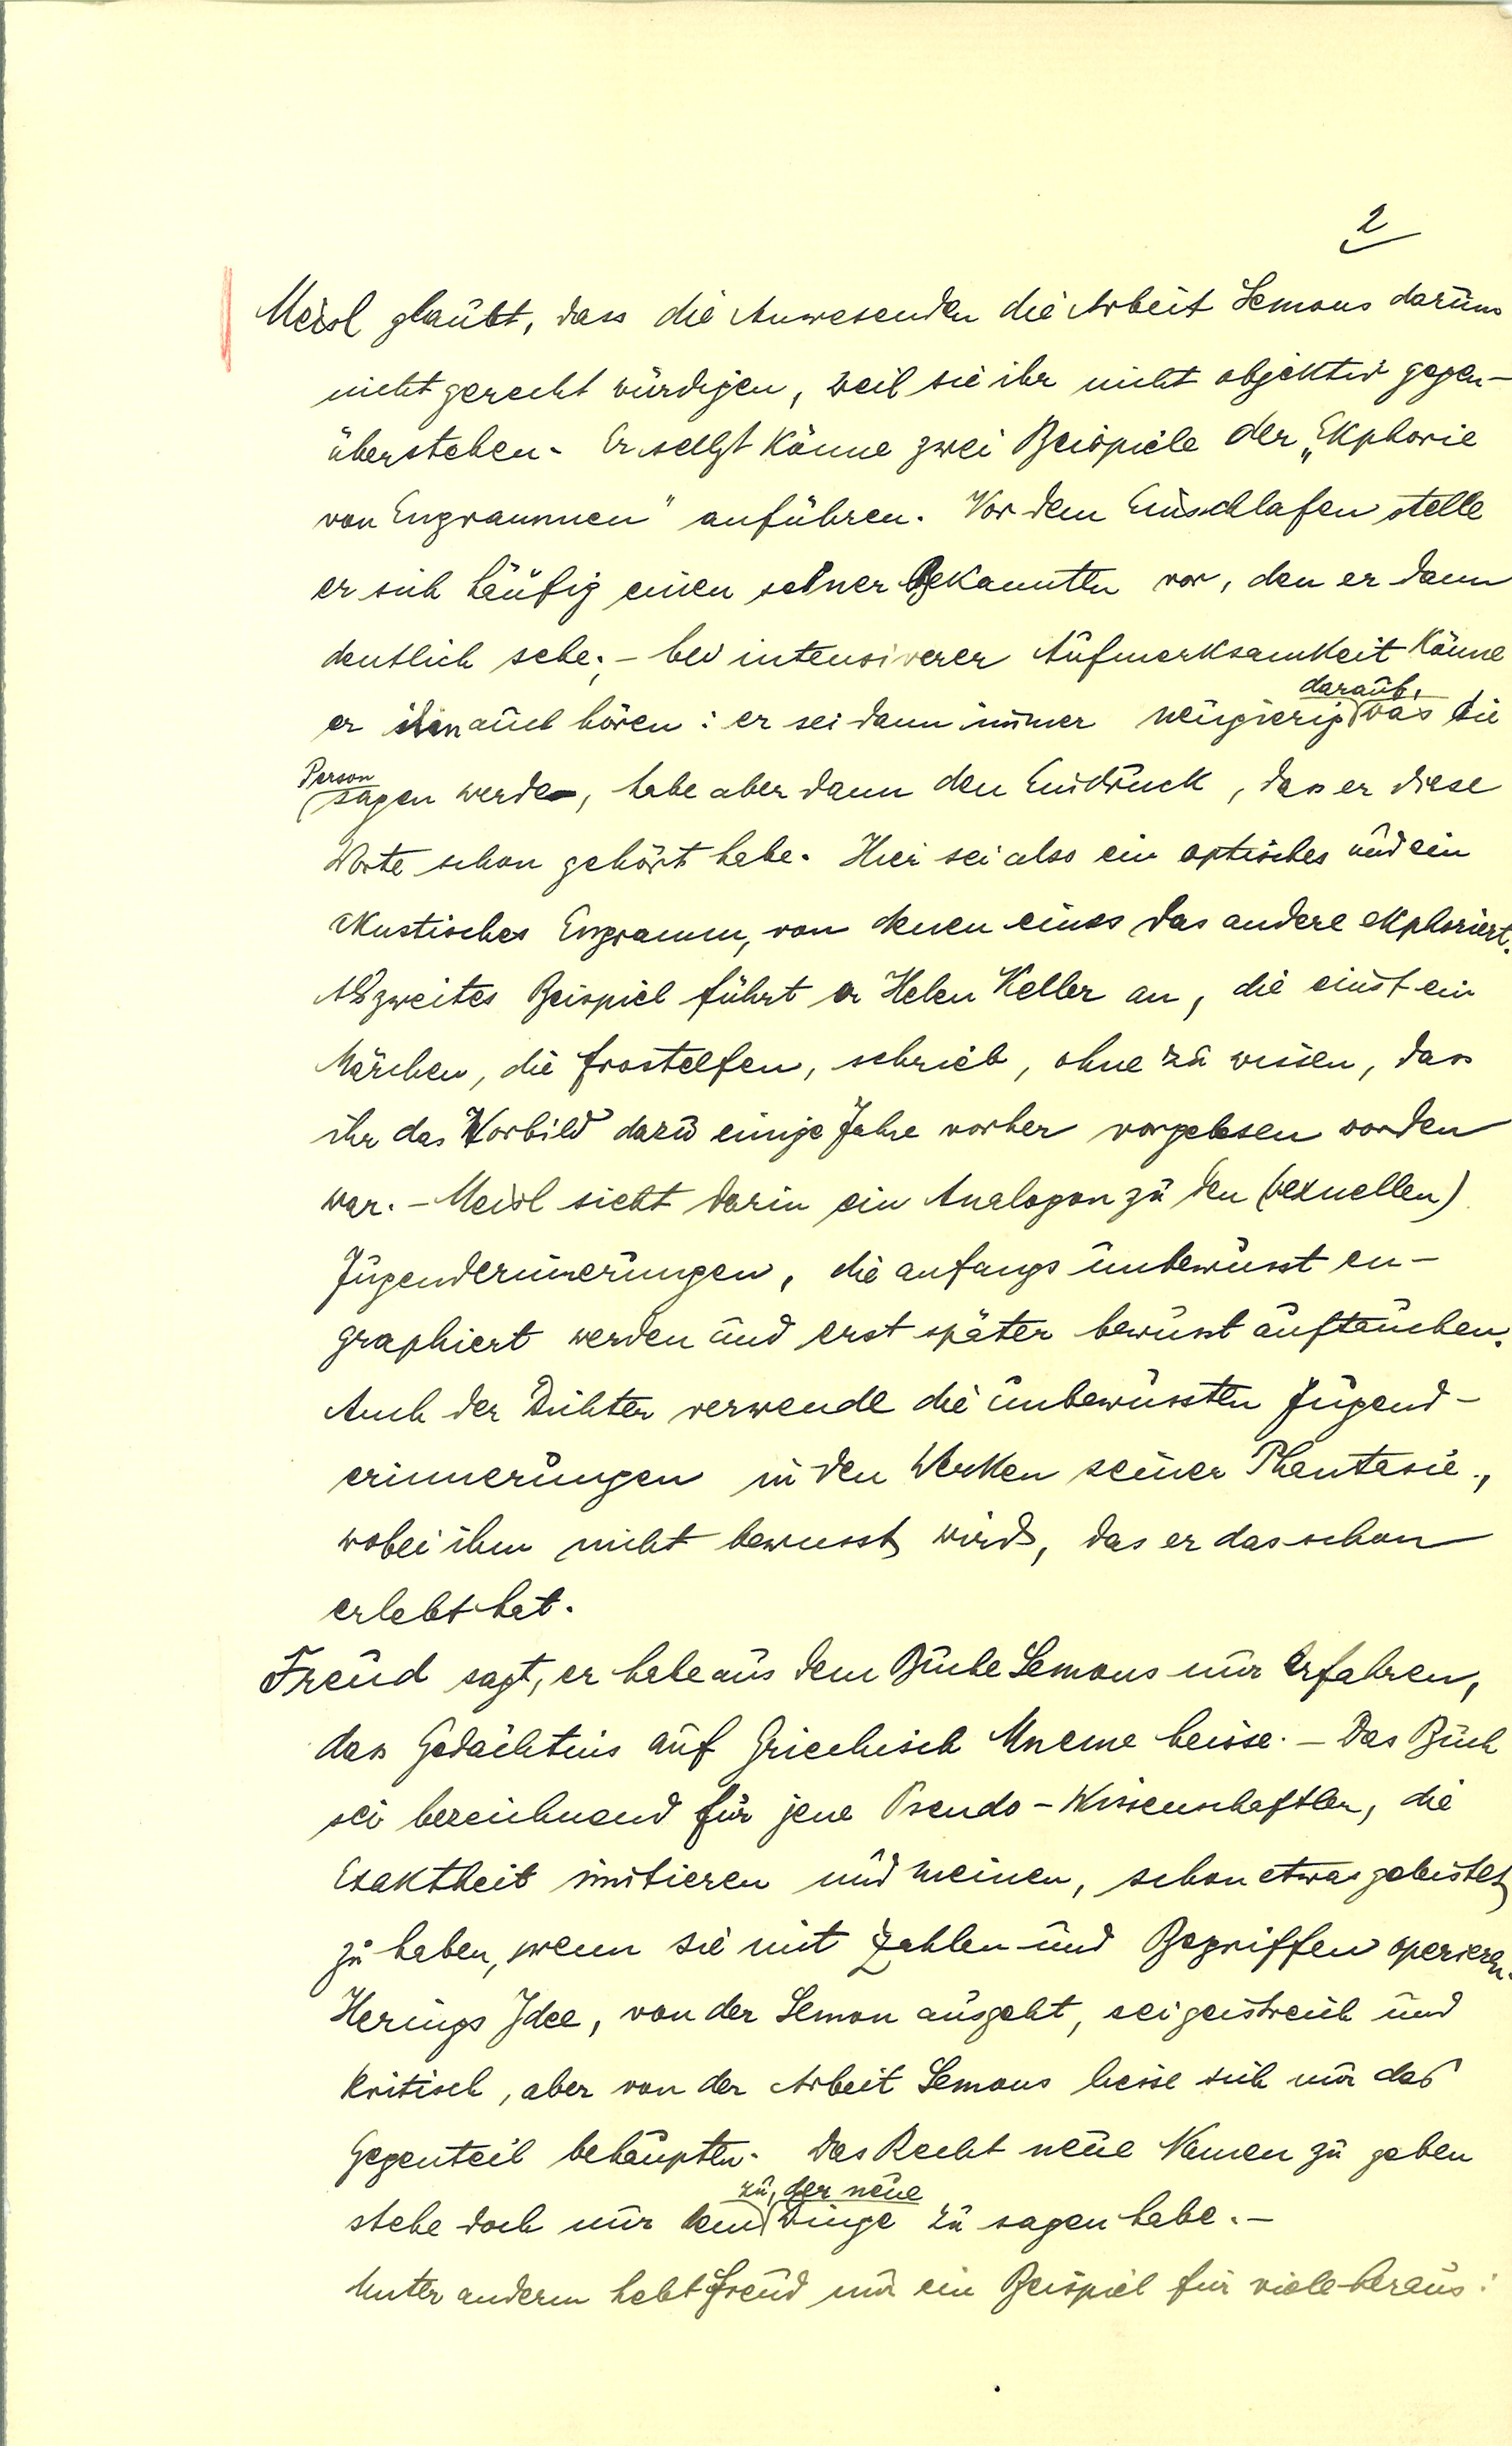 2
Meisl glaubt, dass die Anwesenden die Arbeit Semons darum
nicht gerecht würdigen, weil sie ihr nicht objektiv gegen-
überstehen. Er selbst könne zwei Beispiele der „Ekphorie
von Engrammen" anführen. Vor dem Einschlafen stelle
er sich häufig einen seiner Bekannten vor, den er dann
deutlich sehe; – bei intensiverer Aufmerksamkeit könne
er ihn auch hören: er sei dann immer neugierig darauf, was die
Person sagen werde, habe aber dann den Eindruck, dass er diese
Worte schon gehört habe. Hier sei also ein optisches und ein
akustisches Engramm, von denen eines das andere ekphoriert.
Als zweites Beispiel führt er Helen Keller an, die einst ein
Märchen, die Frostelfen, schrieb, ohne zu wissen, dass
ihr das Vorbild dazu einige Jahre vorher vorgelesen worden
war. – Meisl sieht darin ein Analogon zu den (sexuellen)
Jugenderinnerungen, die anfangs unbewusst en-
graphiert werden und erst später bewusst auftauchen.
Auch der Dichter verwende die unbewussten Jugend-
erinnerungen in den Werken seiner Phantasie,
wobei ihm nicht bewusst wird, das er das schon
erlebt hat.
Freud sagt, er habe aus dem Buche Semons nur erfahren,
dass Gedächtnis auf Griechisch Mneme heisse. – Das Buch
sei bezeichnend für jene Pseudo-Wissenschaftler, die
Exaktheit imitieren und meinen, schon etwas geleistet
zu haben, wenn sie mit Zahlen und Begriffen operieren.
Herings Idee, von der Semon ausgeht, sei geistreich und
kritisch, aber von der Arbeit Semons liesse sich nur das
Gegenteil behaupten. Das Recht neue Namen zu geben
stehe doch nur dem zu, der neue Dinge zu sagen habe. –
Unter anderm hebt Freud nur ein Beispiel für viele heraus: